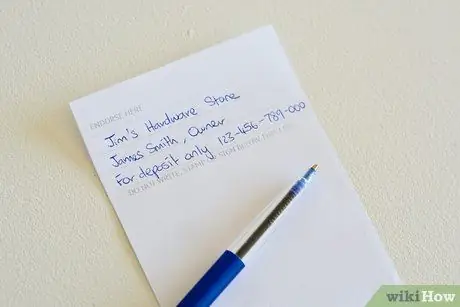 ENDORSE HERE
Jim's Hardware Store
James Smith, Owner
For deposit only 123-456-789-000
DO NOT WRITE, STAMP OR SIGN BELOW THIS LINE
wikiHow